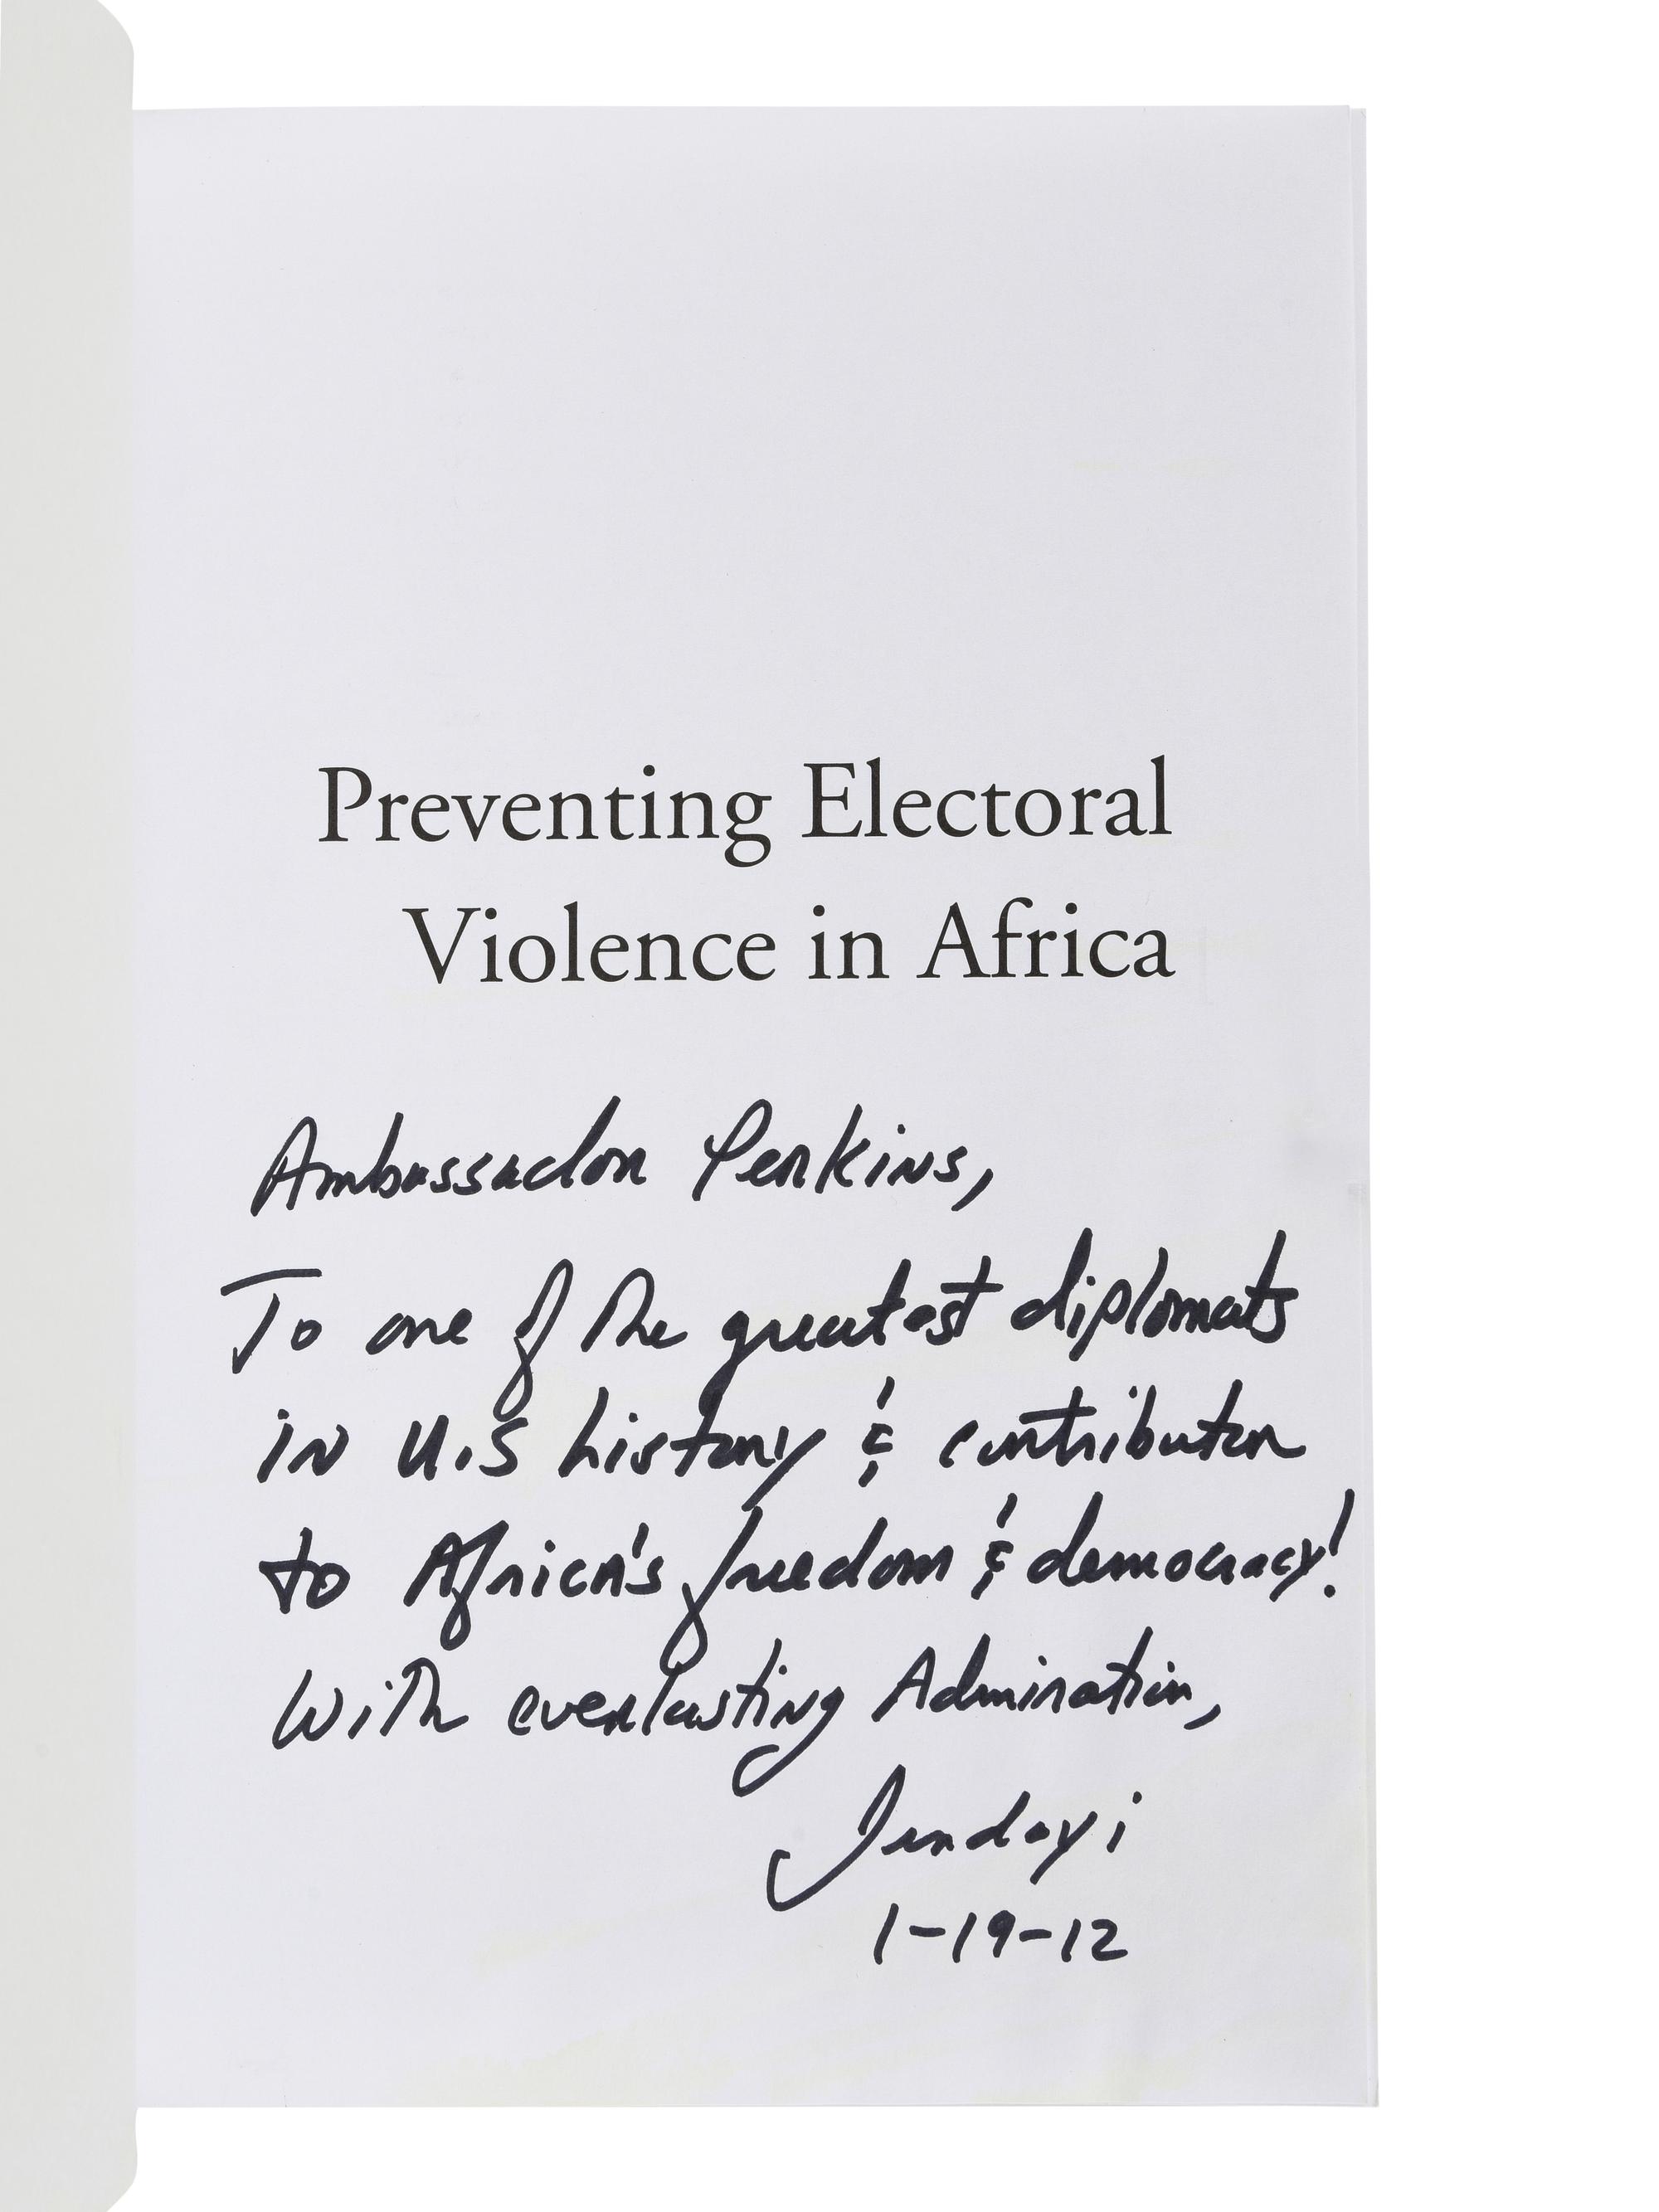 Preventing Electoral
Violence in Africa
Ambassador Perkins,
To one of the greatest diplomats
in U.S history & contributor
to Africa's freedom & democracy!
With everlasting Admiration,
Jendayi
1-19-12